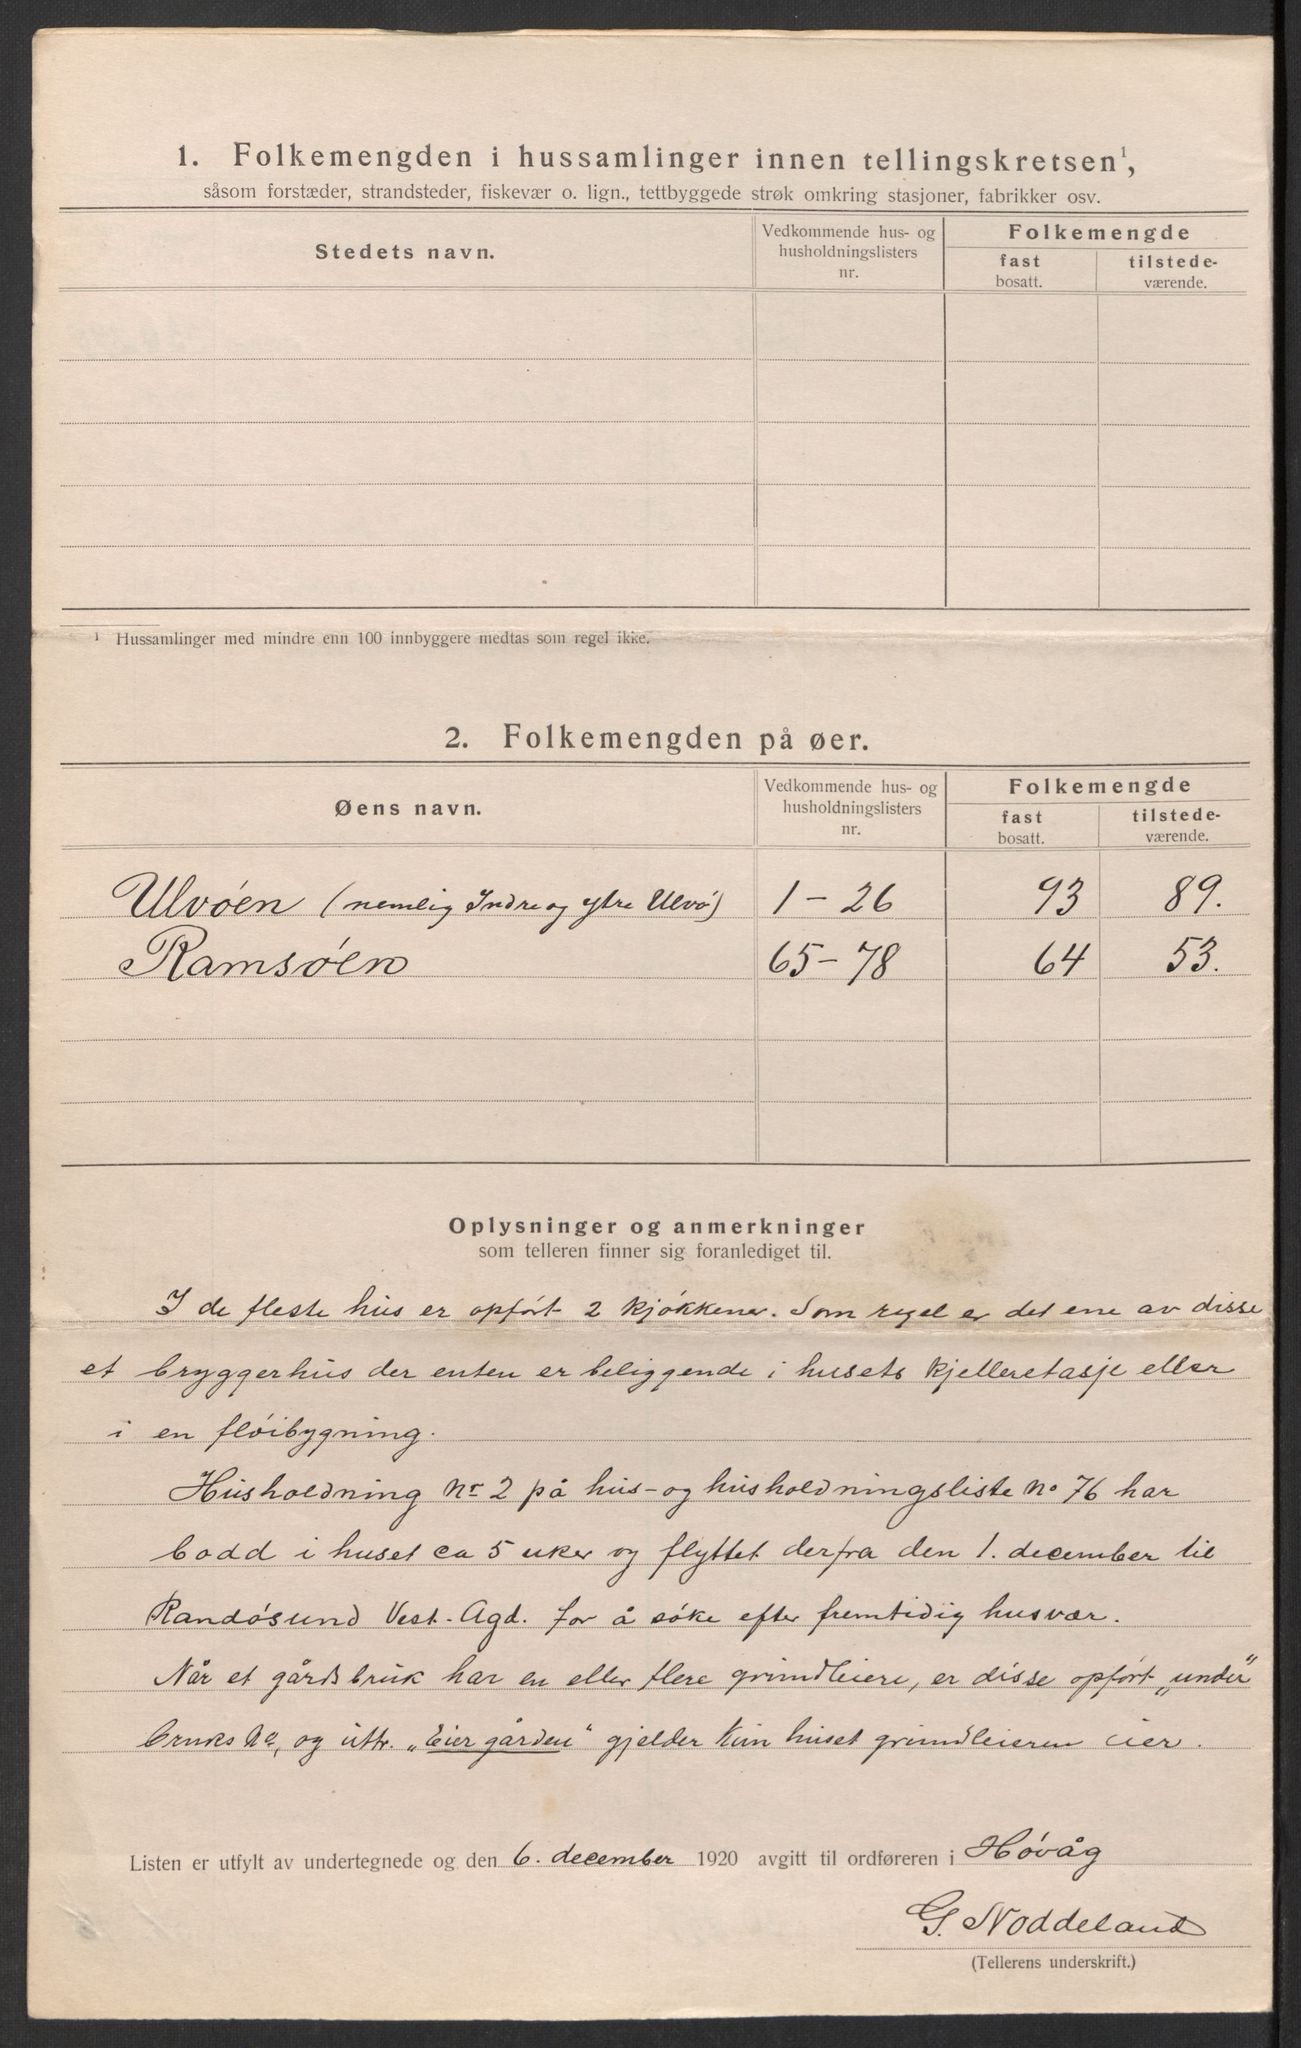 1. Folkemengden i hussamlinger innen tellingskretsen¹,
såsom forstæder, strandsteder, fiskevær o. lign., tettbyggede strøk omkring stasjoner, fabrikker osv.
Stedets navn.
Vedkommende hus- og
husholdningslisters
nr.
Folkemengde
fast
bosatt.
tilstede-
værende.
¹ Hussamlinger med mindre enn 100 innbyggere medtas som regel ikke.
2. Folkemengden på øer.
Øens navn.
Vedkommende hus- og
husholdningslisters
nr.
Folkemengde
fast
bosatt.
tilstede-
værende.
Ulvøen (nemlig Indre og ytre Ulvø) 1 - 26 93 89.
Ramsøen 65 - 78 64 53.
Oplysninger og anmerkninger
som telleren finner sig foranlediget til.
I de fleste hus er opført 2 kjøkkener. Som regel er det ene av disse
et bryggerhus der enten er beliggende i husets kjelleretasje eller
i en fløibygning.
Husholdning Nr 2 på hus- og husholdningsliste No 76 har
bodd i huset ca 5 uker og flyttet derfra den 1. december til
Randøsund Vest-Agd. for å søke efter fremtidig husvær.
Når et gårdsbruk har en eller flere grundleiere, er disse opført „under"
bruks No, og uttr. „Eier gården" gjelder kun huset grundleieren eier.
Listen er utfylt av undertegnede og den 6. december 1920 avgitt til ordføreren i Høvåg
G. Noddeland
(Tellerens underskrift.)